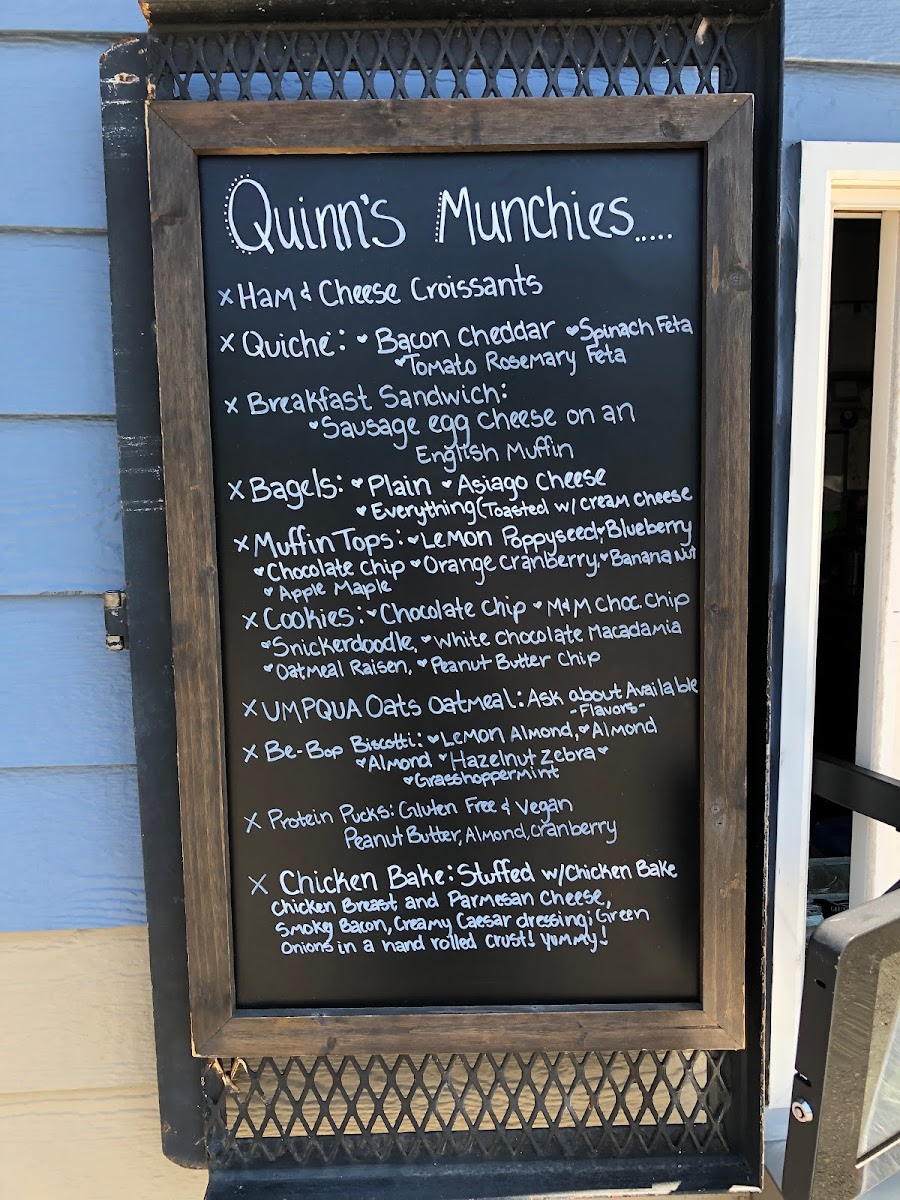 Quinn's Munchies.....
x Ham & Cheese Croissants
x Quiche: ♥ Bacon Cheddar ♥ Spinach Feta
♥ Tomato Rosemary Feta
x Breakfast Sandwich:
♥ Sausage egg Cheese on an
English Muffin
x Bagels: ♥ Plain ♥ Asiago Cheese
♥ Everything (Toasted w/ cream cheese
x Muffin Tops: ♥ Lemon Poppyseed ♥ Blueberry
♥ Chocolate Chip ♥ Orange Cranberry. ♥ Banana nut
♥ Apple Maple
x Cookies: ♥ Chocolate Chip ♥ M&M Choc. Chip
♥ Snickerdoodle, ♥ White Chocolate Macadamia
♥ Oatmeal Raisen, ♥ Peanut Butter Chip
x UMPQUA Oats Oatmeal: Ask about Available
-Flavors-
x Be-Bop Biscotti: ♥ Lemon Almond, ♥ Almond
♥ Almond ♥ Hazelnut Zebra ♥
♥ Grasshopper mint
x Protein Pucks: Gluten Free & Vegan
Peanut Butter, Almond, Cranberry
x Chicken Bake: Stuffed w/ Chicken Bake
Chicken Breast and Parmesan Cheese,
Smoky Bacon, Creamy Caesar dressing; Green
Onions in a hand rolled crust! Yummy!